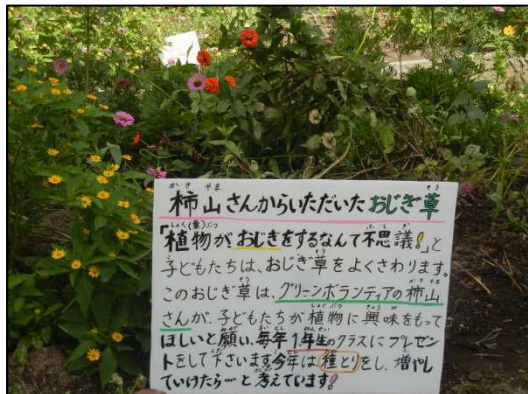 柿山さんからいただいたおじぎ草
「植物がおじぎをするなんて不思議!」と
子どもたちは、おじぎ草をよくさわります。
このおじぎ草は、グリーンボランティアの柿山
さんが、子どもたちが植物に興味をもって
ほしいと願い、毎年1年生のクラスにプレゼン
トをして下さいます。今年は種とりをし、増やし
ていけたら…と考えています!